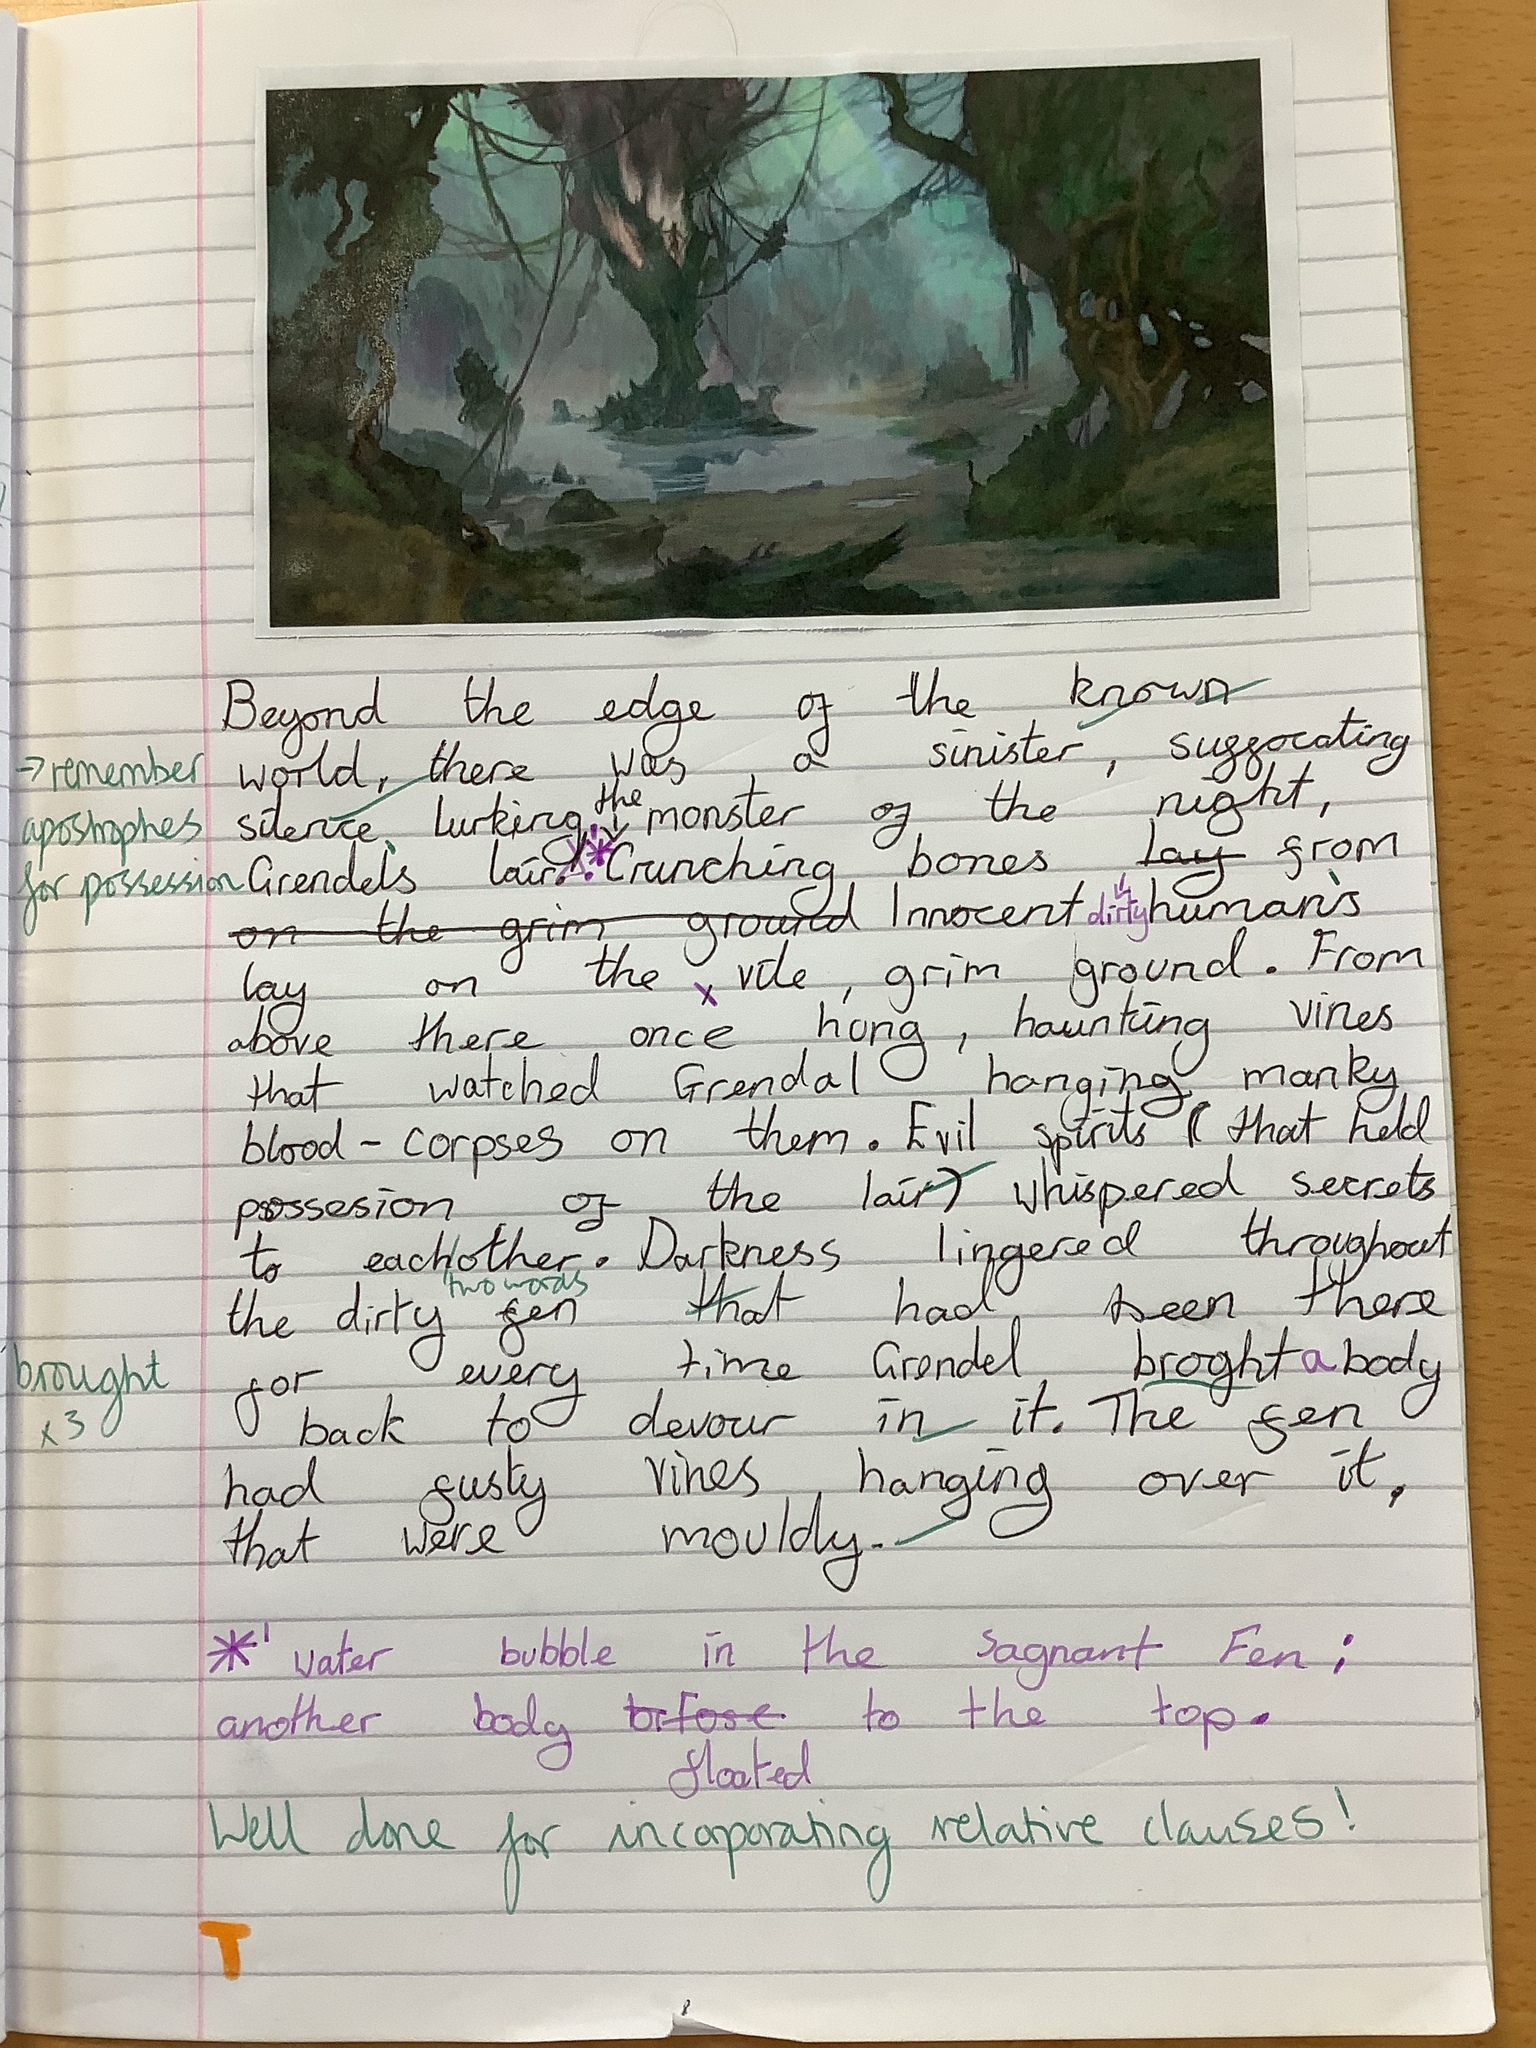 Beyond the edge of the known
→ remember world, there was a sinister, suffocating
apostrophes silence, lurking the monster of the night,
for possession Grendel's lair. * Crunching bones lay from
on the grim ground Innocent dirty human's
lay on the x vile, grim ground. From
above there once hong, haunting vines
that watched Grendal hanging manky
blood-corpses on them. Evil spirits (that held
possesion of the lair) whispered secrets
to each/other. Darkness lingered throughout
two words
the dirty fen that had seen there
brought for every time Grendel broght a body
x3 back to devour in it. The fen
had fusty vines hanging over it,
that were mouldy.
* water bubble in the sagnant Fen;
another body to the top.
floated
Well done for incorporating relative clauses!
T